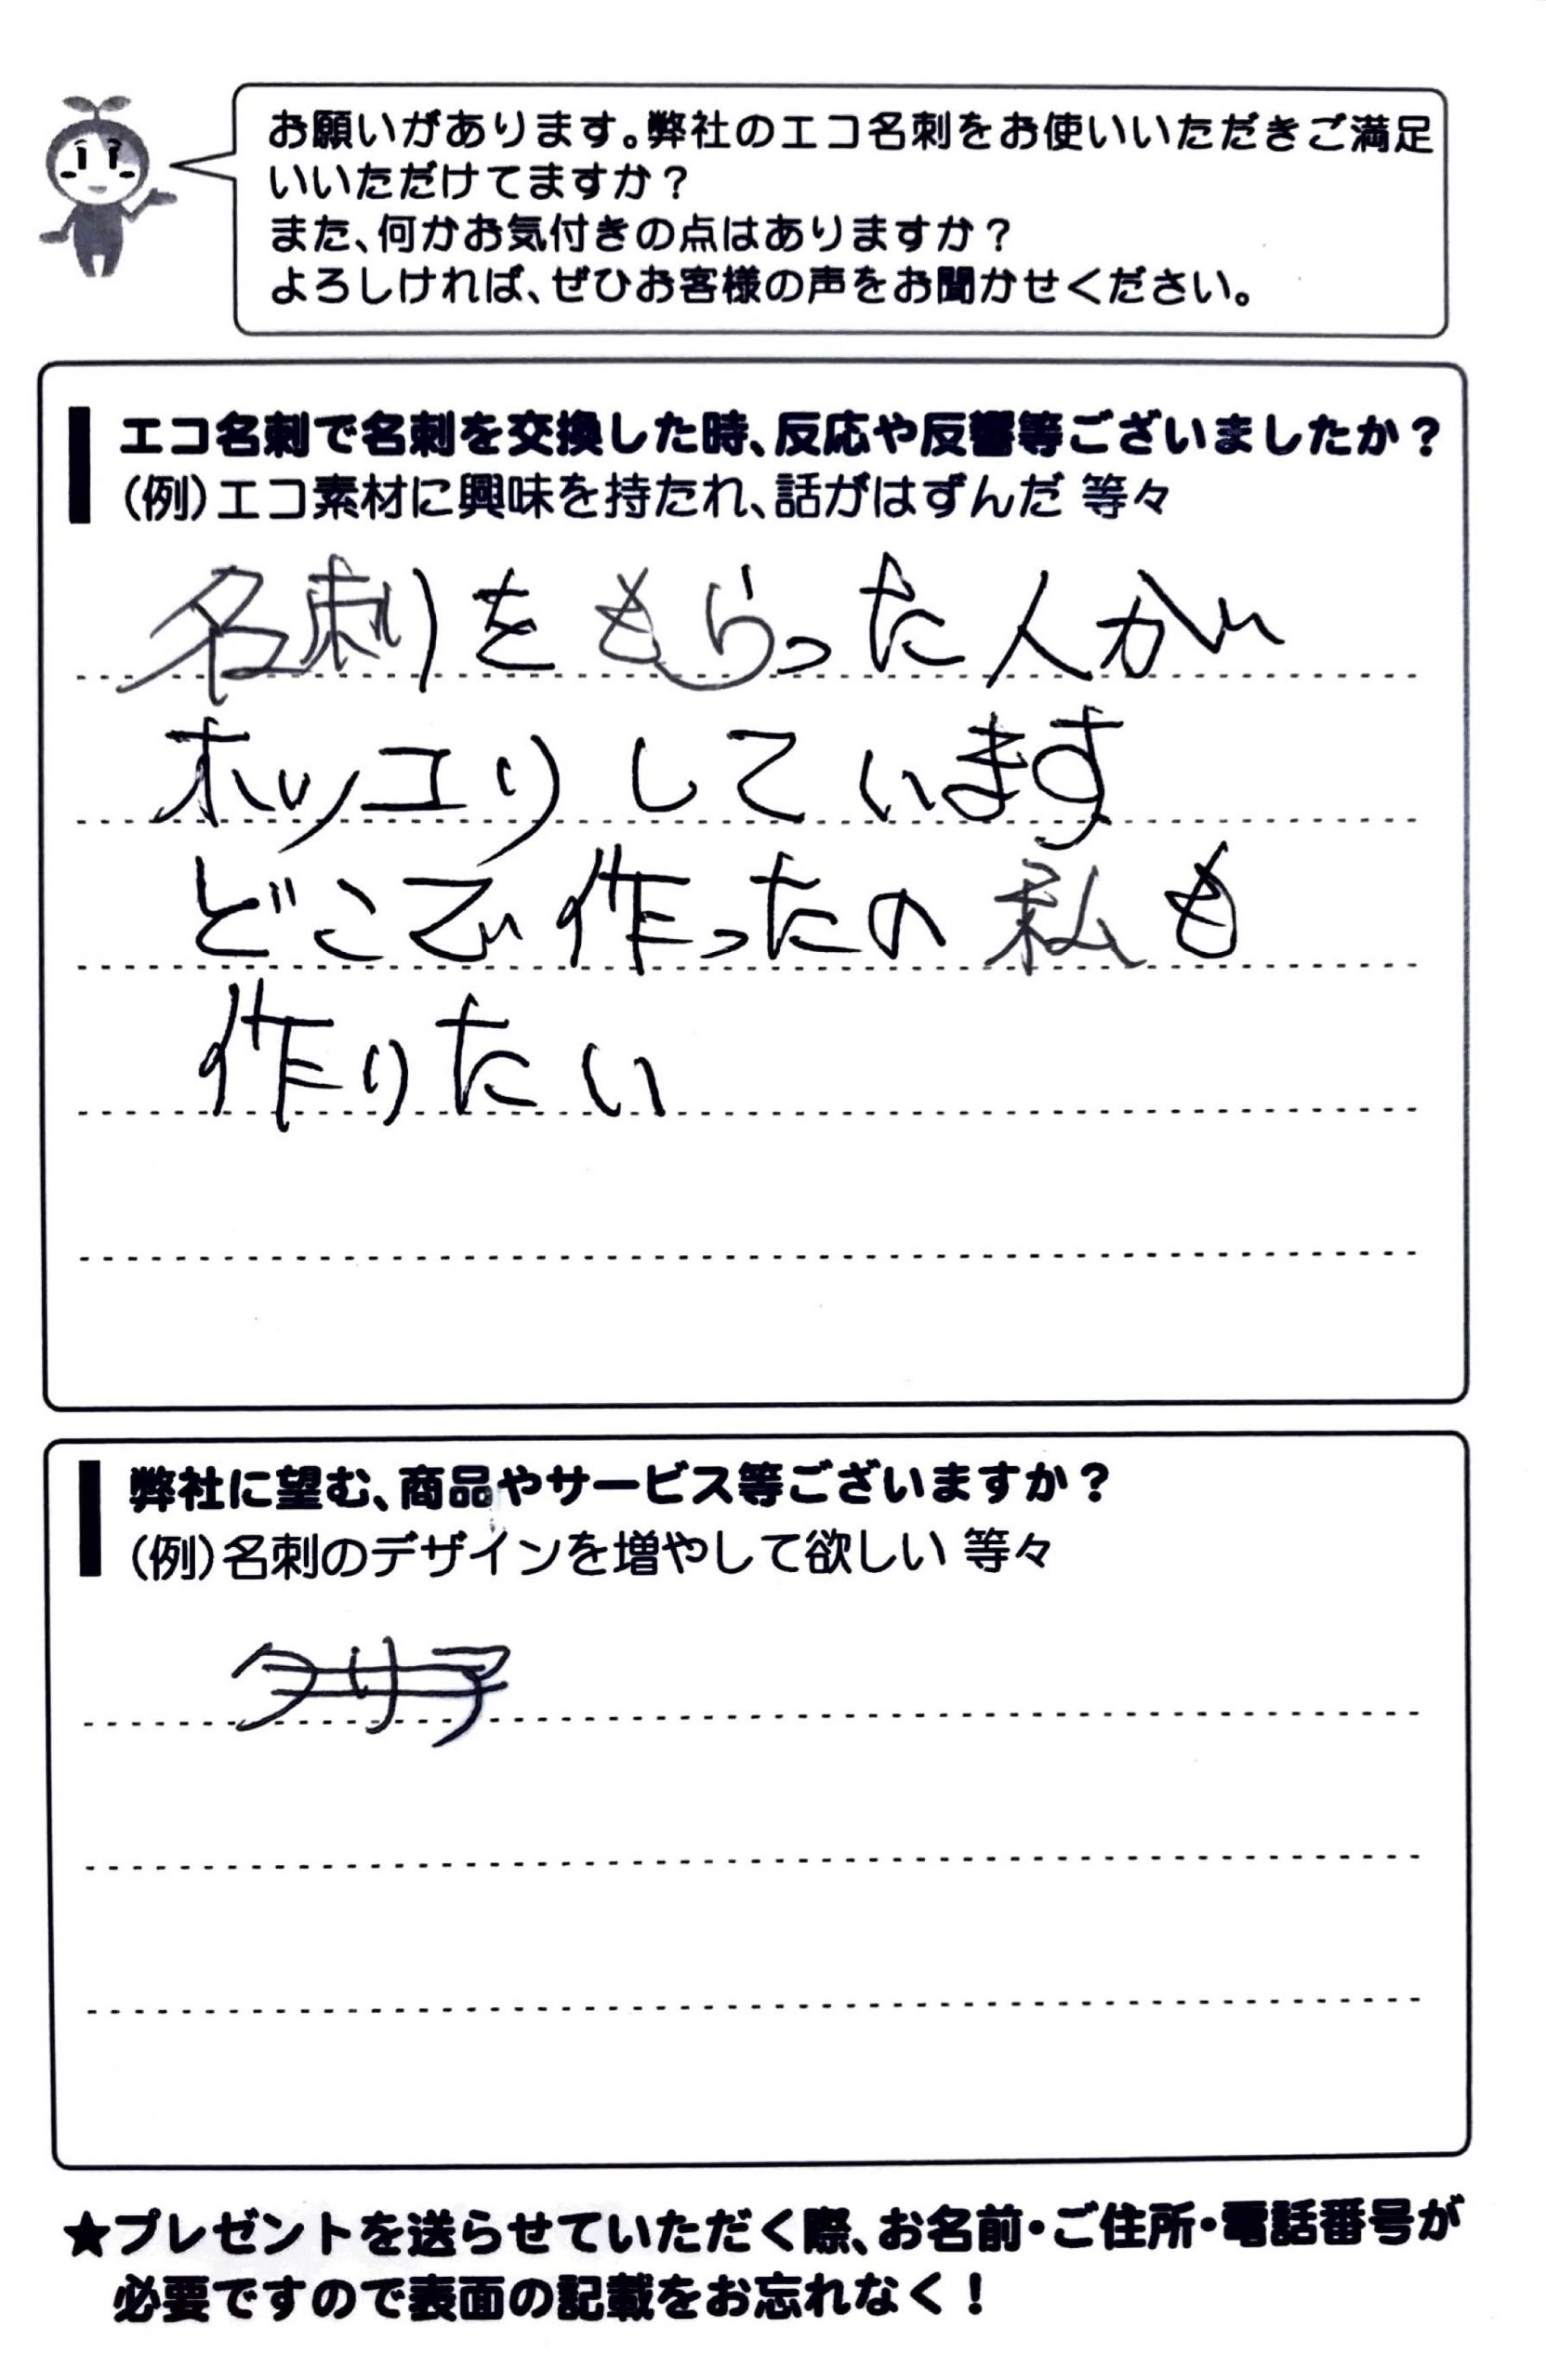 お願いがあります。弊社のエコ名刺をお使いいただきご満足
いいただけてますか？
また、何かお気付きの点はありますか？
よろしければ、ぜひお客様の声をお聞かせください。
エコ名刺で名刺を交換した時、反応や反響等ございましたか？
（例）エコ素材に興味を持たれ、話がはずんだ 等々
名刺をもらった人が
ホッコリしています
どこで作ったの 私も
作りたい
弊社に望む、商品やサービス等ございますか？
（例）名刺のデザインを増やして欲しい 等々
★プレゼントを送らせていただく際、お名前・ご住所・電話番号が
必要ですので表面の記載をお忘れなく！